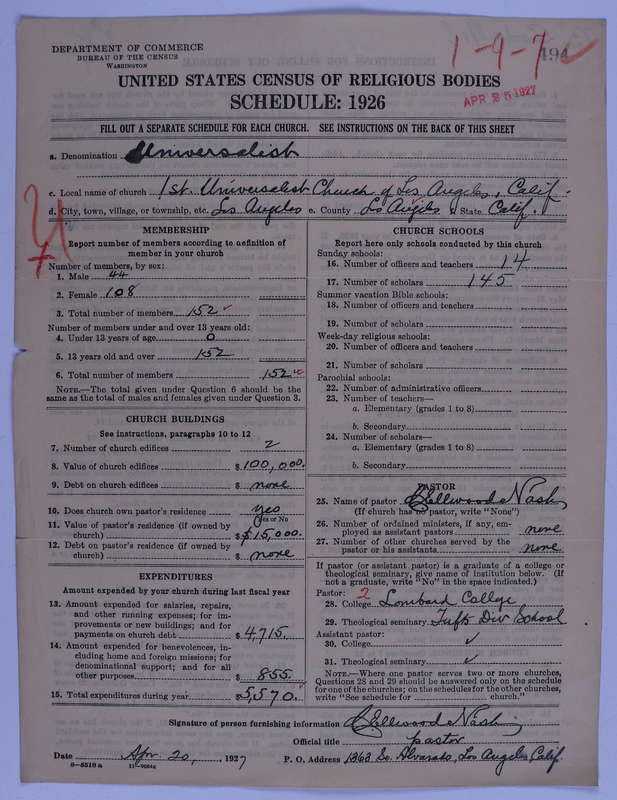 DEPARTMENT OF COMMERCE
BUREAU OF THE CENSUS
WASHINGTON
1-9-7
494
APR 25 1927
UNITED STATES CENSUS OF RELIGIOUS BODIES
SCHEDULE: 1926
FILL OUT A SEPARATE SCHEDULE FOR EACH CHURCH. SEE INSTRUCTIONS ON THE BACK OF THIS SHEET
a. Denomination Universalist
c. Local name of church 1st. Universalist Church of Los Angeles, Calif.
d. City, town, village, or township, etc. Los Angeles e. County Los Angeles State Calif.
MEMBERSHIP
Report number of members according to definition of
member in your church
Number of members, by sex:
1. Male 44
2. Female 108
3. Total number of members 152
Number of members under and over 13 years old:
4. Under 13 years of age 0
5. 13 years old and over 152
6. Total number of members 152
NOTE.—The total given under Question 6 should be
same as the total of males and females given under Question 3.
CHURCH BUILDINGS
See instructions, paragraphs 10 to 12
7. Number of church edifices 2
8. Value of church edifices $100,000.
9. Debt on church edifices $ none
10. Does church own pastor's residence yes
Yes or No
11. Value of pastor's residence (if owned by
church) $ $15,000.
12. Debt on pastor's residence (if owned by
church) $ none
EXPENDITURES
Amount expended by your church during last fiscal year
13. Amount expended for salaries, repairs,
and other running expenses; for im-
provements or new buildings; and for
payments on church debt $ 4,715.
14. Amount expended for benevolences, in-
cluding home and foreign missions; for
denominational support; and for all
other purposes $ 855.
15. Total expenditures during year $5,570.
CHURCH SCHOOLS
Report here only schools conducted by this church
Sunday schools:
16. Number of officers and teachers 14
17. Number of scholars 145
Summer vacation Bible schools:
18. Number of officers and teachers
19. Number of scholars
Week-day religious schools:
20. Number of officers and teachers
21. Number of scholars
Parochial schools:
22. Number of administrative officers
23. Number of teachers—
a. Elementary (grades 1 to 8)
b. Secondary
24. Number of scholars—
a. Elementary (grades 1 to 8)
b. Secondary
PASTOR
25. Name of pastor C Ellwood Nash
(If church has no pastor, write "None")
26. Number of ordained ministers, if any, em-
ployed as assistant pastors none
27. Number of other churches served by the
pastor or his assistants none
If pastor (or assistant pastor) is a graduate of a college or
theological seminary, give name of institution below. (If
not a graduate, write "No" in the space indicated.)
Pastor: 2
28. College Lombard College
29. Theological seminary Tufts Div School
Assistant pastor:
30. College ✓
31. Theological seminary ✓
NOTE.—Where one pastor serves two or more churches,
Questions 28 and 29 should be answered only on the schedule
for one of the churches; on the schedules for the other churches,
write "See schedule for church."
Signature of person furnishing information C Ellwood Nash
Official title pastor
Date Apr. 20, 1927 P. O. Address 1363 So. Alvarado, Los Angeles Calif.
8—5518 a